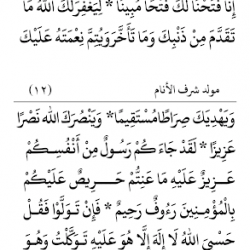 إِنَّا فَتَحْنَا لَكَ فَتْحًا مُبِينًا * لِيَغْفِرَ لَكَ اللهُ مَا
تَقَدَّمَ مِنْ ذَنْبِكَ وَمَا تَأَخَّرَ وَيُتِمَّ نِعْمَتَهُ عَلَيْكَ
مولد شرف الأنام (١٢)
وَيَهْدِيَكَ صِرَاطًا مُسْتَقِيمًا * وَيَنْصُرَكَ اللهُ نَصْرًا
عَزِيزًا * لَقَدْ جَاءَكُمْ رَسُولٌ مِنْ أَنْفُسِكُمْ
عَزِيزٌ عَلَيْهِ مَا عَنِتُّمْ حَرِيصٌ عَلَيْكُمْ
بِالْمُؤْمِنِينَ رَءُوفٌ رَحِيمٌ * فَإِنْ تَوَلَّوْا فَقُلْ
حَسْبِيَ اللهُ لَا إِلَهَ إِلَّا هُوَ عَلَيْهِ تَوَكَّلْتُ وَهُوَ